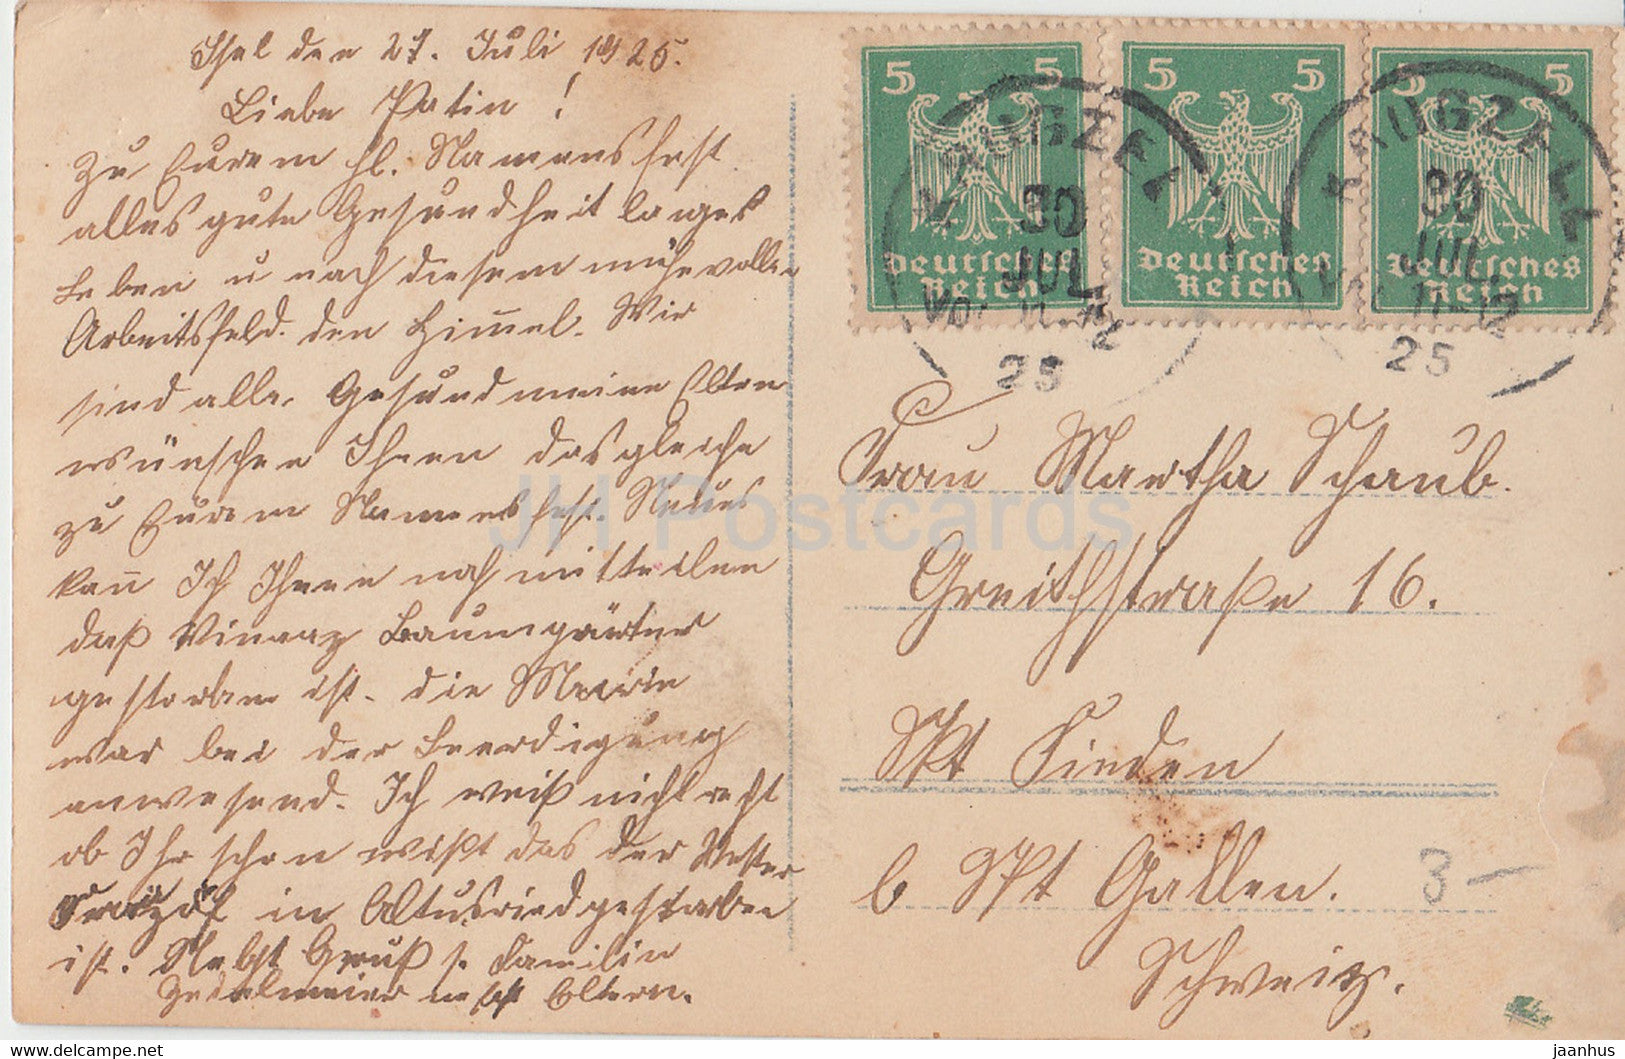 Thal den 27. Juli 1925.
Liebe Patin !
Zu Eurem hl. Namensfest
alles gute Gesundheit langes
Leben u nach diesem mühevollen
Arbeitsfeld. den Him̅el. Wir
sind alle. Gesund meine Eltern
wünschen Ihnen das gleiche
zu Eurem Namensfest. Neues
kan̅ Ich Ihnen noch mitteilen
daß Baumgärtner
gestorben ist. die Marie
war bei der Beerdigung
anwesend. Ich weiß nicht recht
ob Ihr schon wißt das der Vetter
in gestorben
ist. Nebst Gruß s. Familie
nebst Eltern.
5 5 5 5 5 5
Deutsches Reich
Deutsches Reich
Deutsches Reich
KAUGZELL
30
JUL
Vor 11-12
25
KAUGZELL
30
JUL
Vor 11-12
25
Frau Martha Schaub.
Greithstraße 16.
Skt Finden
b Skt Gallen.
Schweiz.
3-
JH Postcards
delcampe.net
jaanhus